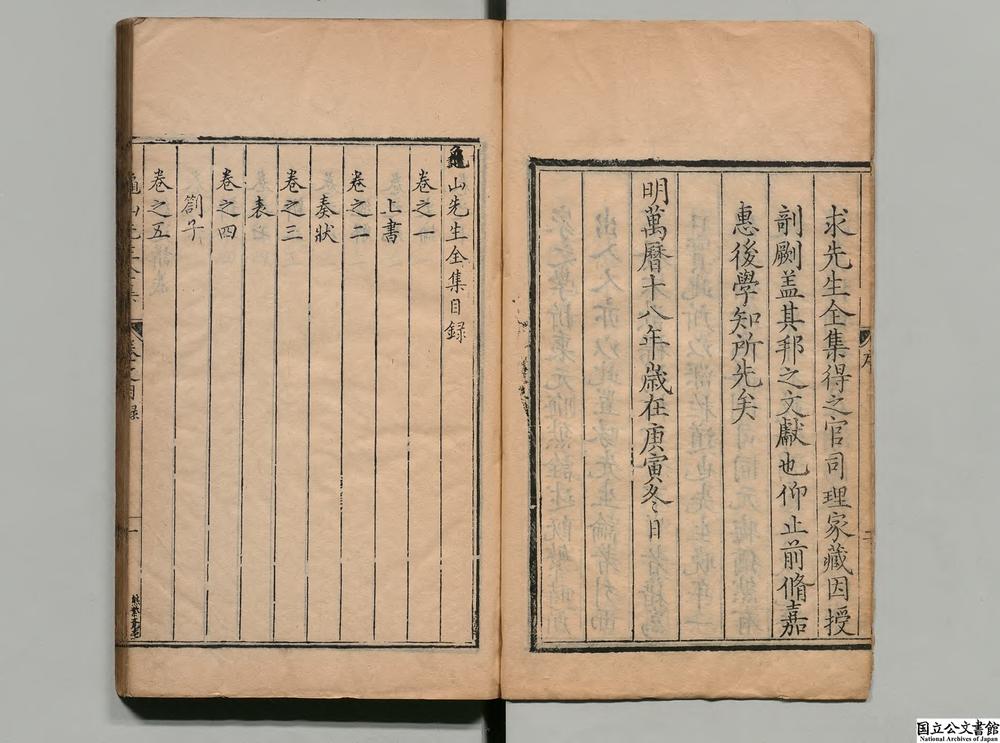 求先生全集得之官司理家藏因授
剞劂盖其邦之文獻也仰止前脩嘉
惠後學知所先矣
明萬曆十八年歲在庚寅冬日
序
龜山先生全集目録
卷之一
上書
卷之二
奏狀
卷之三
表
卷之四
劄子
卷之五
龜山先生全集
卷之目録
一
国立公文書館
National Archives of Japan